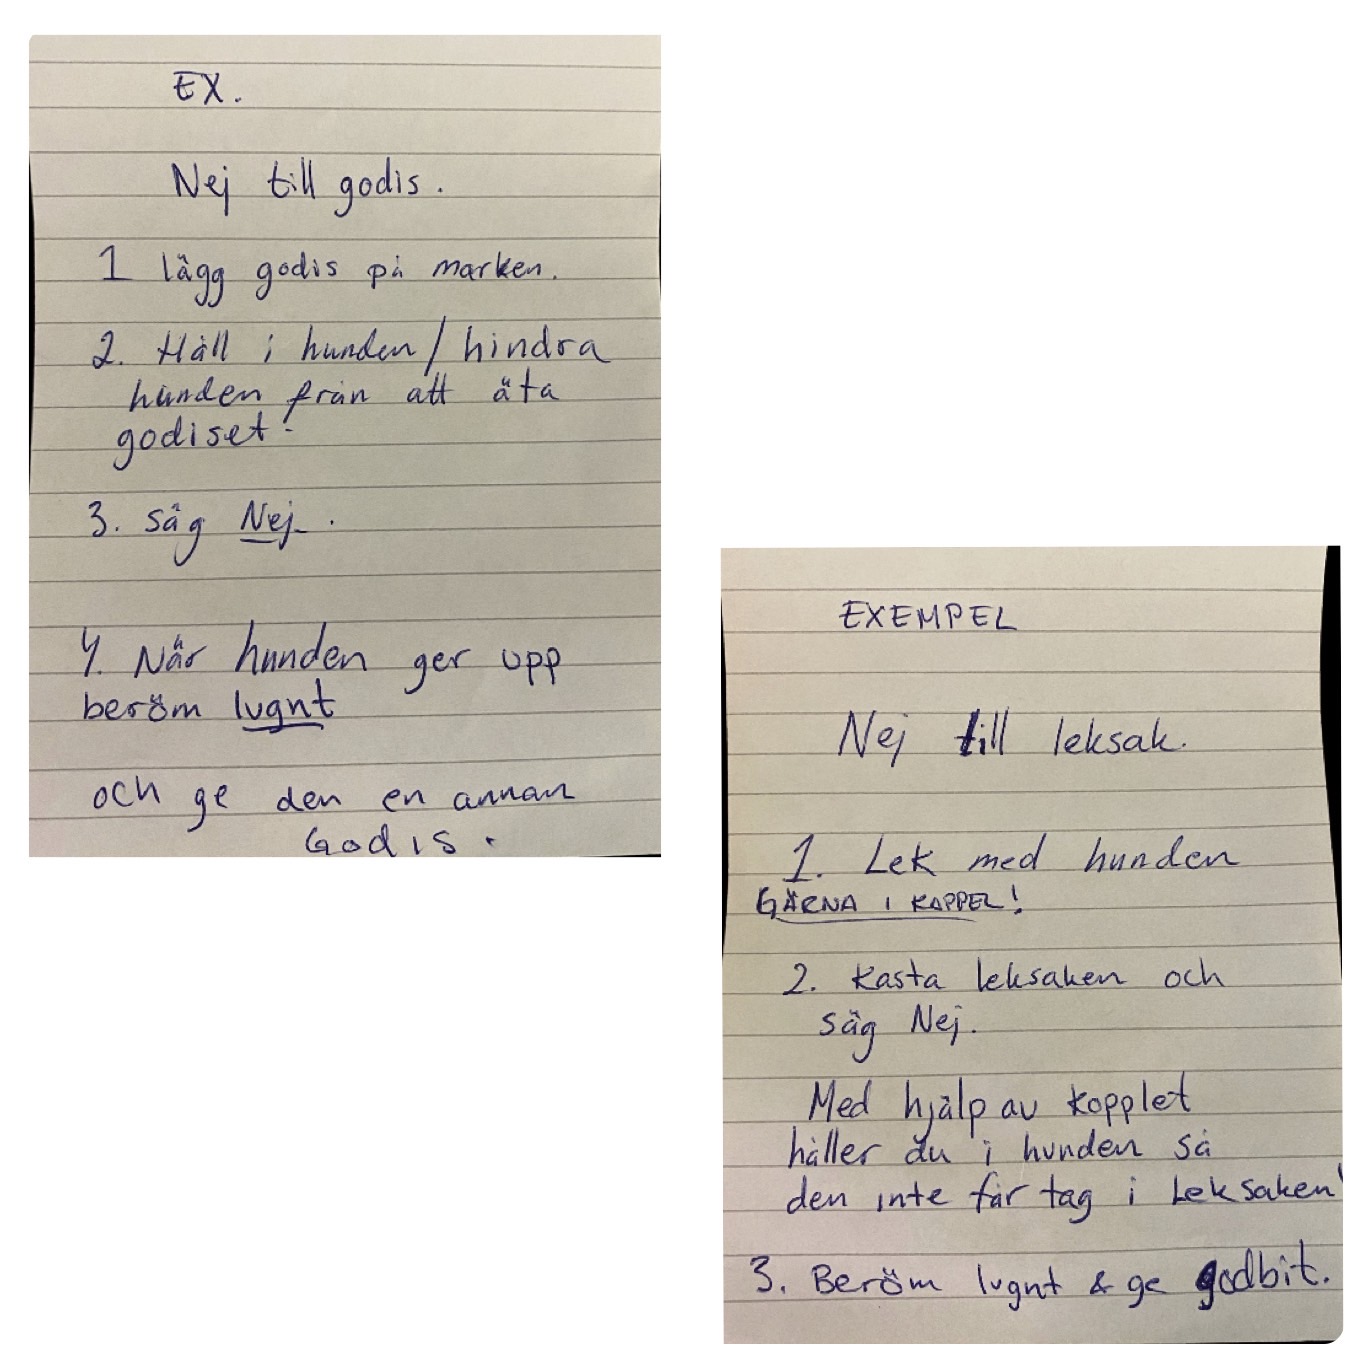 EX.
Nej till godis.
1 lägg godis på marken.
2. Håll i hunden/hindra
hunden från att äta
godiset!
3. säg Nej.
4. När hunden ger upp
beröm lugnt
och ge den en annan
Godis.
EXEMPEL
Nej till leksak.
1. Lek med hunden
GÄRNA I KOPPEL!
2. Kasta leksaken och
säg Nej.
Med hjälp av kopplet
håller du i hunden så
den inte får tag i Leksaken!
3. Beröm lugnt & ge godbit.